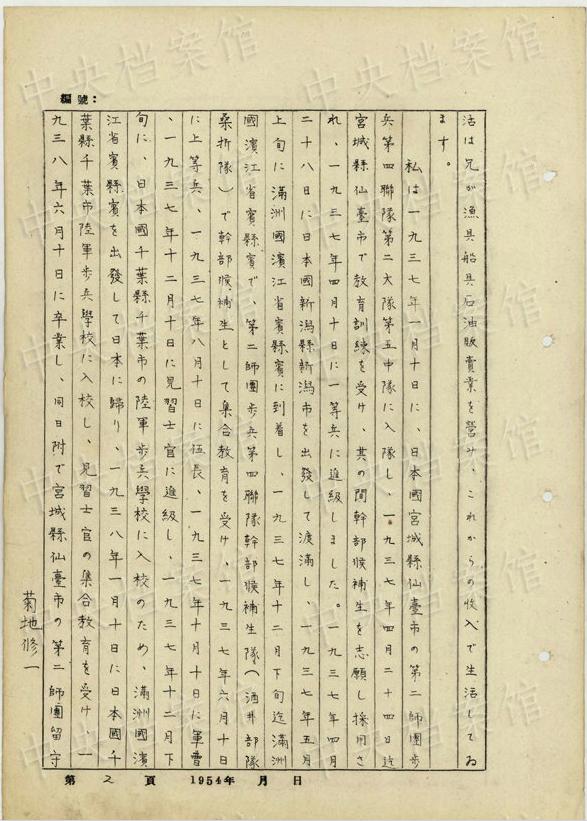 編號：
活は兄が漁具船具石油販賣業を営み、これからの收入で生活してゐ
ます。
私は一九三七年一月十日に、日本國宮城縣仙臺市の第二師團步
兵第四聯隊第二大隊第五中隊に入隊し、一九三七年四月二十四日迄
宮城縣仙臺市で教育訓練を受け、其の間幹部候補生を志願し採用さ
れ、一九三七年四月十日に一等兵に進級しました。一九三七年四月
二十八日に日本國新潟縣新潟市を出發して渡滿し、一九三七年五月
上旬に滿洲國濱江省賓縣賓に到着し、一九三七年十二月下旬迄滿洲
國濱江省賓縣賓で、第二師團步兵第四聯隊幹部候補生隊（酒井部隊
桑折隊）で幹部候補生として集合教育を受け、一九三七年六月十日
に上等兵、一九三七年八月十日に伍長、一九三七年十月十日に軍曹
、一九三七年十二月十日に見習士官に進級し、一九三七年十二月下
旬に、日本國千葉縣千葉市の陸軍步兵學校に入校のため、滿洲國濱
江省賓縣賓を出發して日本に歸り、一九三八年一月十日に日本國千
葉縣千葉市陸軍步兵學校に入校し、見習士官の集合教育を受け、一
九三八年六月十日に卒業し、同日附で宮城縣仙臺市の第二師團留守
菊地修一
第 2 頁 1954年 月 日
中央档案馆